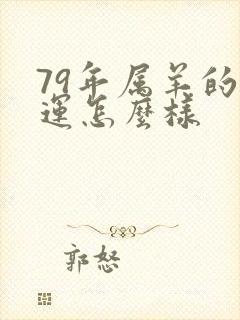 79年属羊的
運怎麼樣
郭怒